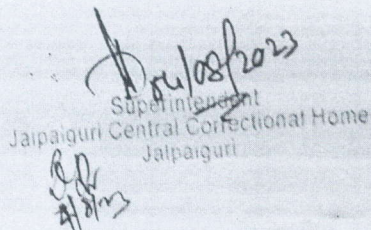 04/08/2023
Superintendent
Jalpaiguri Central Correctional Home
Jalpaiguri
4/8/23